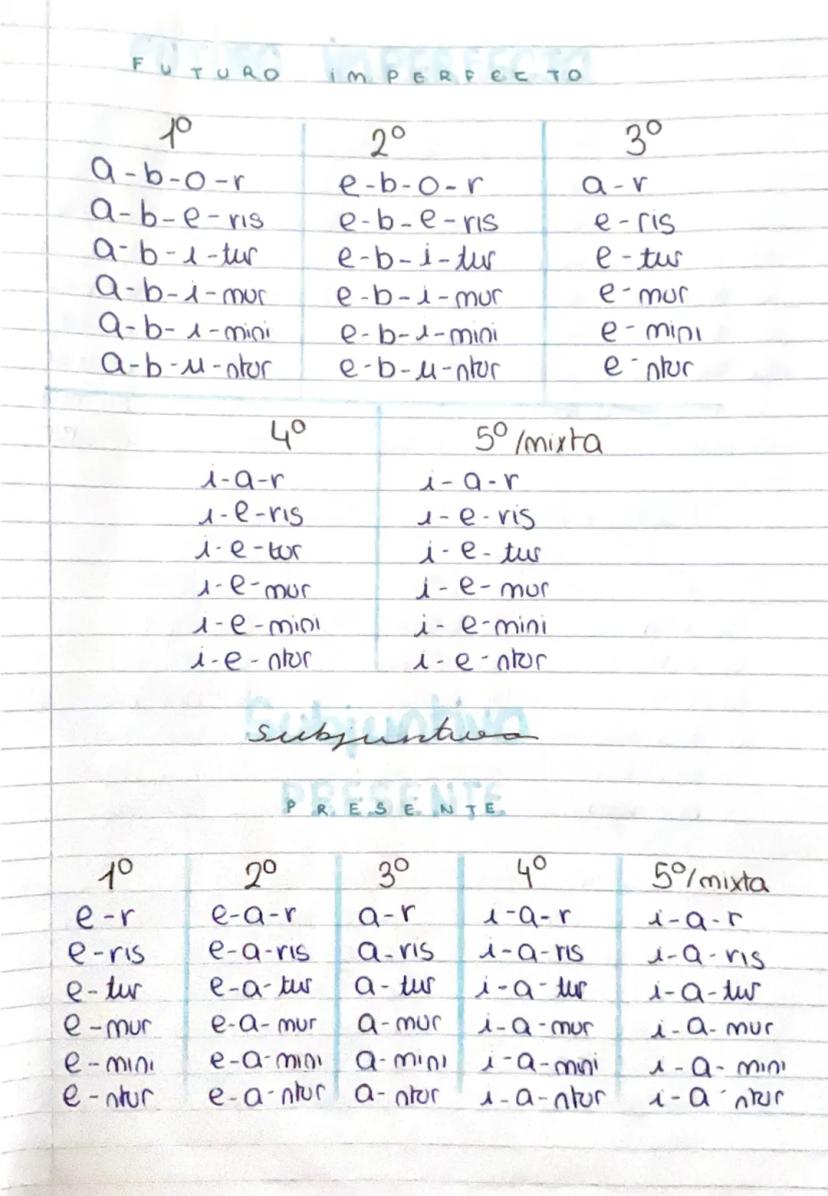 FUTURO imPERFECTO
1º 2º 3º
a-b-o-r e-b-o-r a-r
a-b-e-ris e-b-e-ris e-ris
a-b-i-tur e-b-i-tur e-tur
a-b-i-mur e-b-i-mur e-mur
a-b-i-mini e-b-i-mini e-mini
a-b-u-ntur e-b-u-ntur e-ntur
4º 5º/mixta
i-a-r i-a-r
i-e-ris i-e-ris
i-e-tur i-e-tur
i-e-mur i-e-mur
i-e-mini i-e-mini
i-e-ntur i-e-ntur
subjuntivo
PRESENTE
1º 2º 3º 4º 5º/mixta
e-r e-a-r a-r i-a-r i-a-r
e-ris e-a-ris a-ris i-a-ris i-a-ris
e-tur e-a-tur a-tur i-a-tur i-a-tur
e-mur e-a-mur a-mur i-a-mur i-a-mur
e-mini e-a-mini a-mini i-a-mini i-a-mini
e-ntur e-a-ntur a-ntur i-a-ntur i-a-ntur